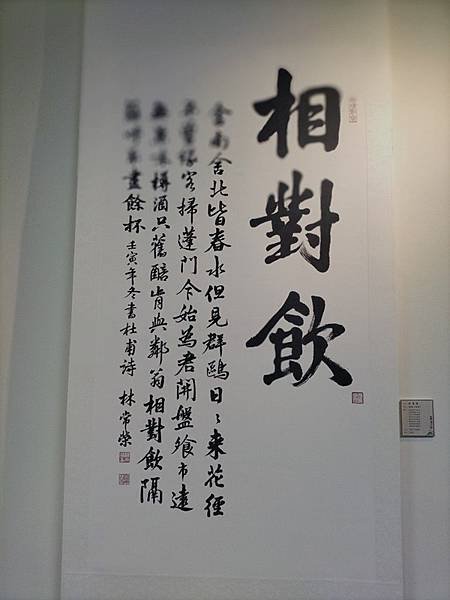 相對飲
南舍北皆春水但見群鷗日〻来花徑
緣客掃蓬門今始為君開盤飧市遠
樽酒只舊醅肯與鄰翁相對飲隔
盡餘杯 壬寅年冬書杜甫詩 林常榮